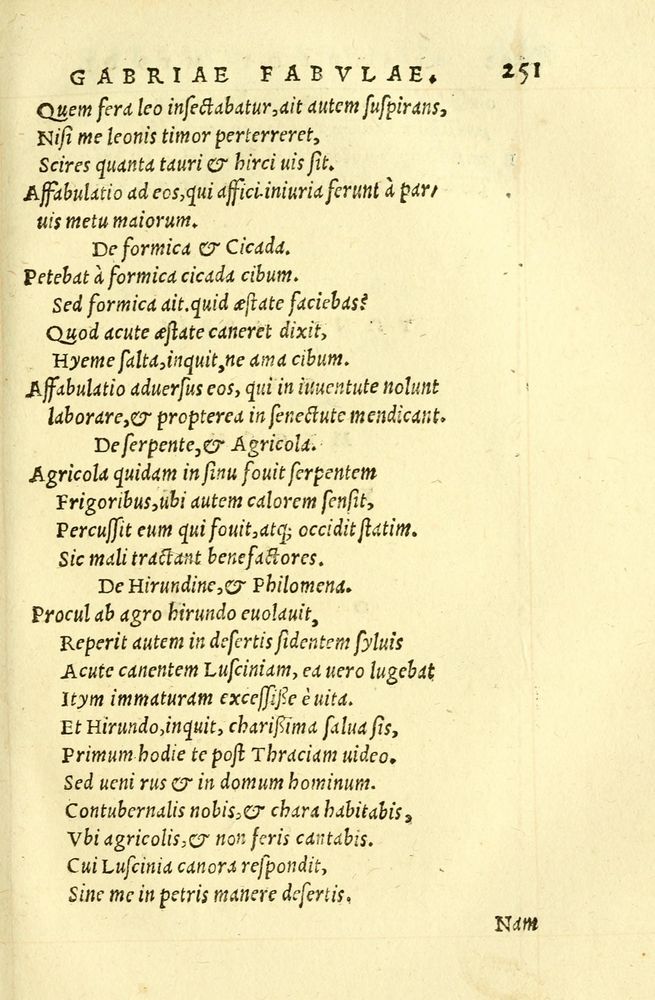 GABRIAE FABVLAE. 251
Quem fera leo insectabatur, ait autem suspirans,
Nisi me leonis timor perterreret,
Scires quanta tauri & hirci uis sit.
Affabulatio ad eos, qui affici iniuria ferunt à par/
uis metu maiorum.
De formica & Cicada.
Petebat à formica cicada cibum.
Sed formica ait. quid æstate faciebas?
Quod acute æstate caneret dixit,
Hyeme salta, inquit, ne ama cibum.
Affabulatio aduersus eos, qui in iuuentute nolunt
laborare, & propterea in senectute mendicant.
De serpente, & Agricola.
Agricola quidam in sinu fouit serpentem
Frigoribus, ubi autem calorem sensit,
Percussit eum qui fouit, atq; occidit statim.
Sic mali tractant benefactores.
De Hirundine, & Philomena.
Procul ab agro hirundo euolauit,
Reperit autem in desertis sidentem syluis
Acute canentem Lusciniam, ea uero lugebat
Itym immaturam excessisse è uita.
Et Hirundo, inquit, charissima salua sis,
Primum hodie te post Thraciam uideo.
Sed ueni rus & in domum hominum.
Contubernalis nobis, & chara habitabis,
Vbi agricolis, & non feris cantabis.
Cui Luscinia canora respondit,
Sine me in petris manere desertis.
Nam